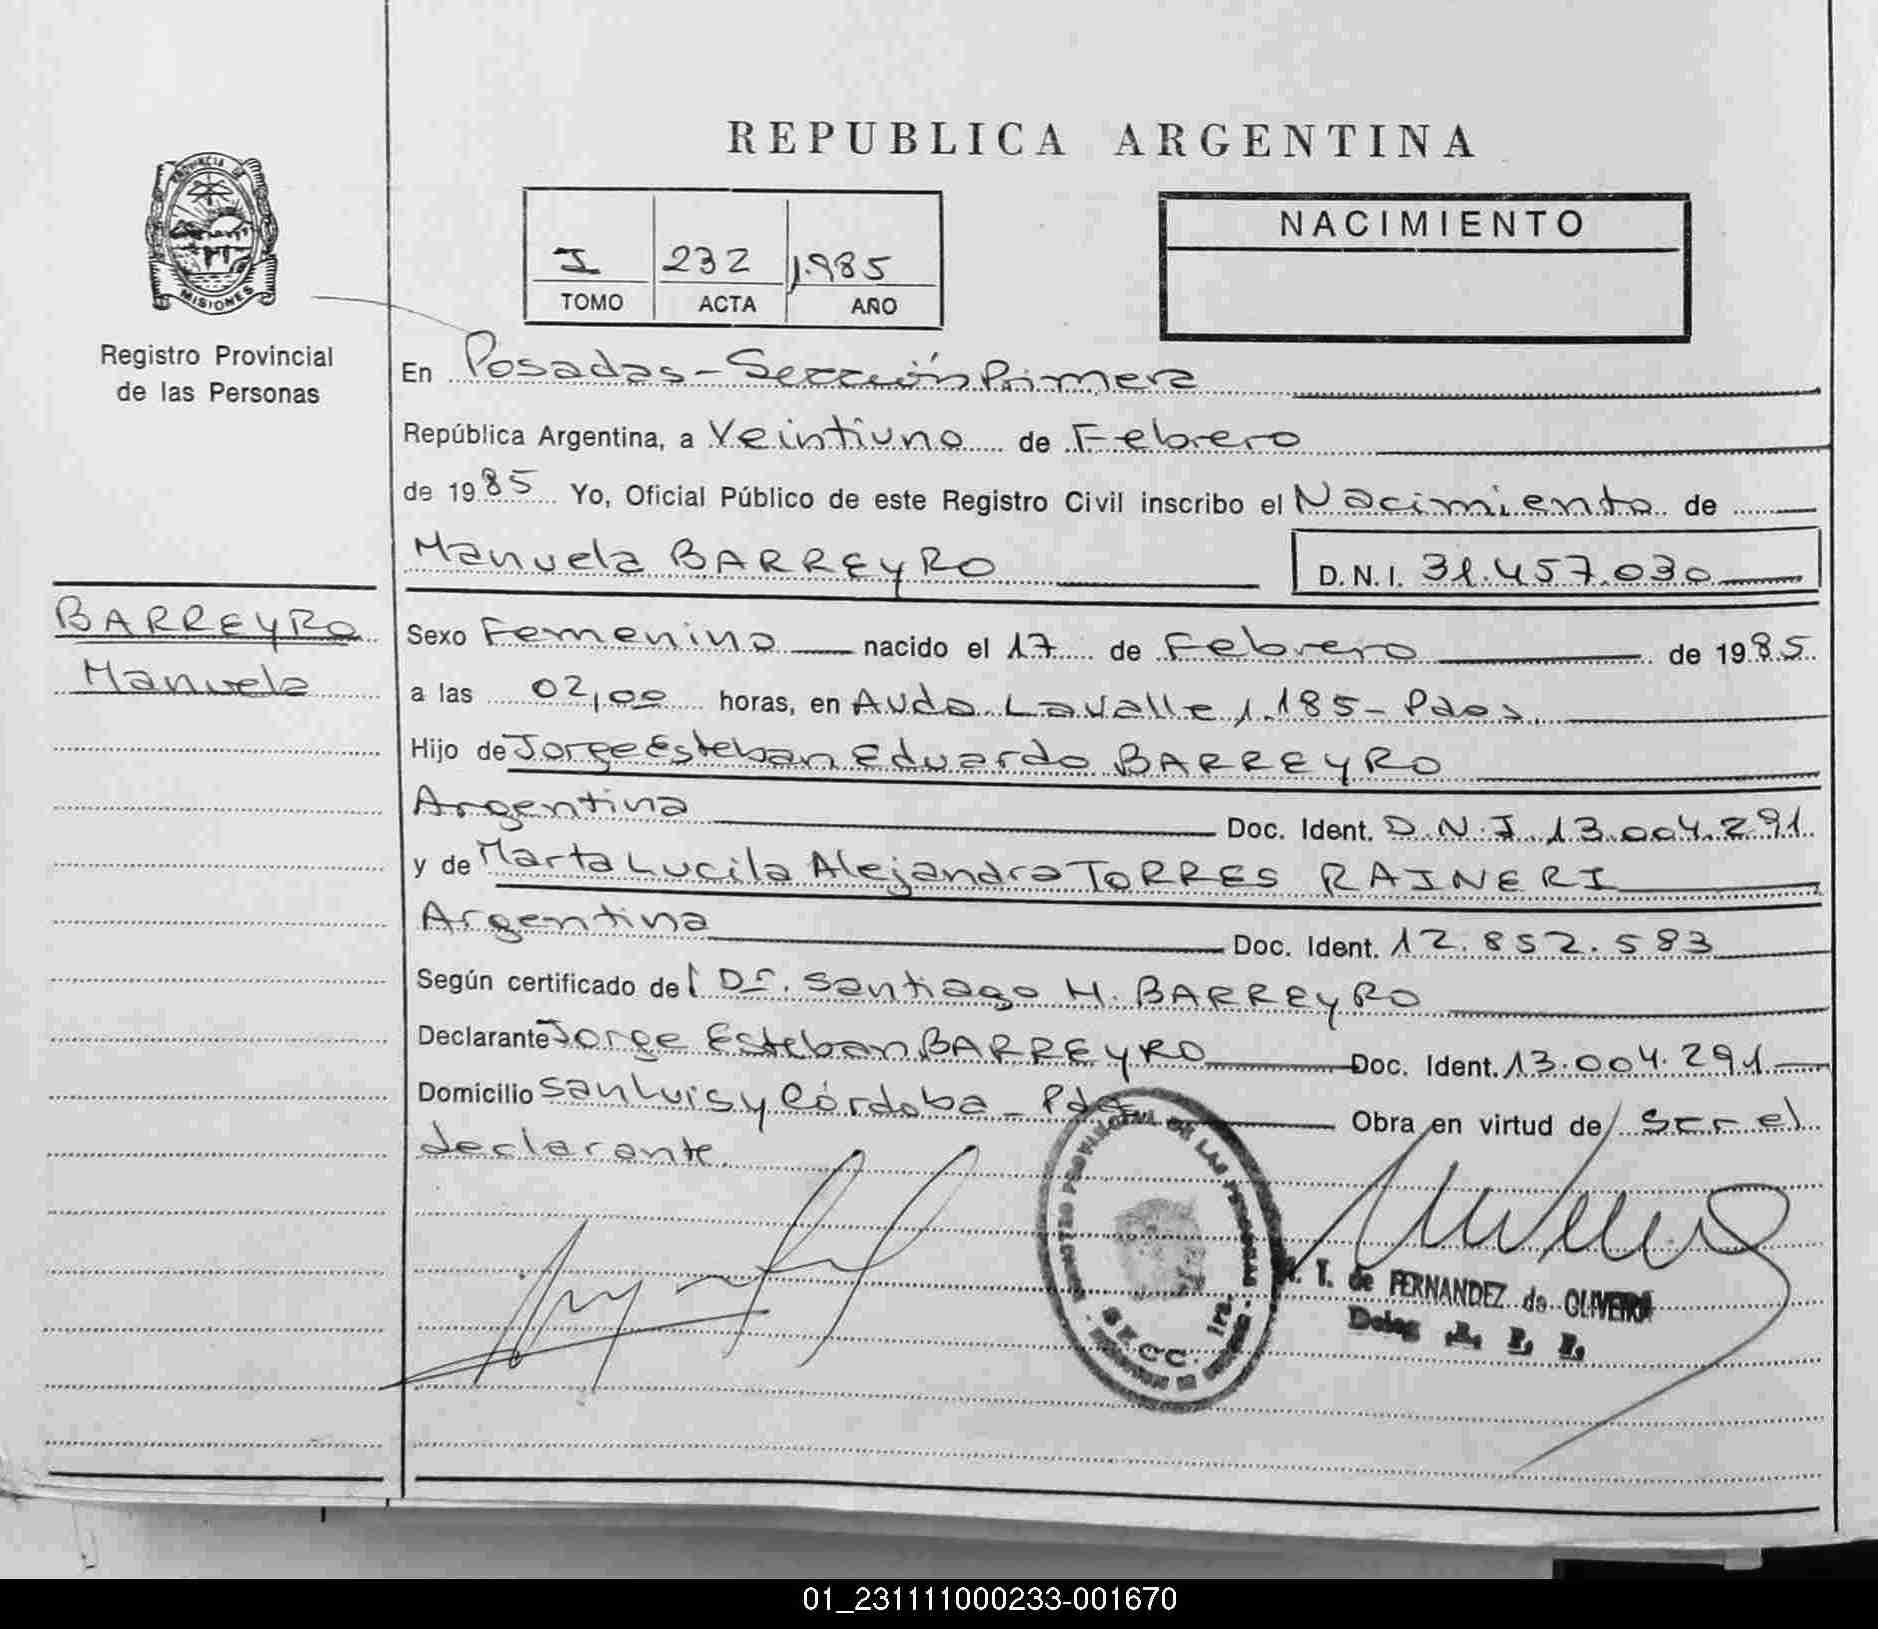 REPUBLICA ARGENTINA
PROVINCIA DE
MISIONES
Registro Provincial
de las Personas
I 232 1.985
TOMO ACTA AÑO
NACIMIENTO
En Posadas - Sección Primera
República Argentina, a Veintiuno de Febrero
de 1985 Yo, Oficial Público de este Registro Civil inscribo el Nacimiento de
Manuela BARREYRO D.N.I. 31.457.030
BARREYRO
Manuela
Sexo Femenino nacido el 17 de Febrero de 1985
a las 02,00 horas, en Avda Lavalle 1.185 - Pdas.
Hijo de Jorge Esteban Eduardo BARREYRO
Argentina Doc. Ident. D.N.I. 13.004.291
y de Marta Lucila Alejandra TORRES RAINERI
Argentina Doc. Ident. 12.852.583
Según certificado del Dr. Santiago H. BARREYRO
Declarante Jorge Esteban BARREYRO Doc. Ident. 13.004.291
Domicilio San Luis y Córdoba - Pdas Obra en virtud de Ser el
declarante.
REGISTRO PROVINCIAL DE LAS PERSONAS
SECC. 1ra.
T. de FERNANDEZ de OLIVEIRA
Deleg
01_231111000233-001670